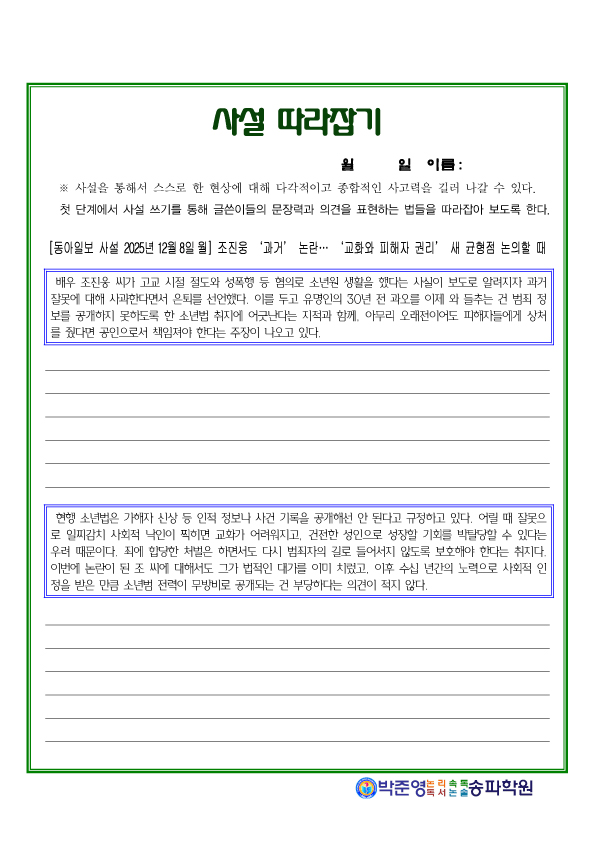 사설 따라잡기
월 일 이름:
※ 사설을 통해서 스스로 한 현상에 대해 다각적이고 종합적인 사고력을 길러 나갈 수 있다.
첫 단계에서 사설 쓰기를 통해 글쓴이들의 문장력과 의견을 표현하는 법들을 따라잡아 보도록 한다.
[동아일보 사설 2025년 12월 8일 월] 조진웅 ‘과거’ 논란… ‘교화와 피해자 권리’ 새 균형점 논의할 때
배우 조진웅 씨가 고교 시절 절도와 성폭행 등 혐의로 소년원 생활을 했다는 사실이 보도로 알려지자 과거
잘못에 대해 사과한다면서 은퇴를 선언했다. 이를 두고 유명인의 30년 전 과오를 이제 와 들추는 건 범죄 정
보를 공개하지 못하도록 한 소년법 취지에 어긋난다는 지적과 함께, 아무리 오래전이어도 피해자들에게 상처
를 줬다면 공인으로서 책임져야 한다는 주장이 나오고 있다.
현행 소년법은 가해자 신상 등 인적 정보나 사건 기록을 공개해선 안 된다고 규정하고 있다. 어릴 때 잘못으
로 일찌감치 사회적 낙인이 찍히면 교화가 어려워지고, 건전한 성인으로 성장할 기회를 박탈당할 수 있다는
우려 때문이다. 죄에 합당한 처벌은 하면서도 다시 범죄자의 길로 들어서지 않도록 보호해야 한다는 취지다.
이번에 논란이 된 조 씨에 대해서도 그가 법적인 대가를 이미 치렀고, 이후 수십 년간의 노력으로 사회적 인
정을 받은 만큼 소년범 전력이 무방비로 공개되는 건 부당하다는 의견이 적지 않다.
박준영 논리속독 독서논술 송파학원